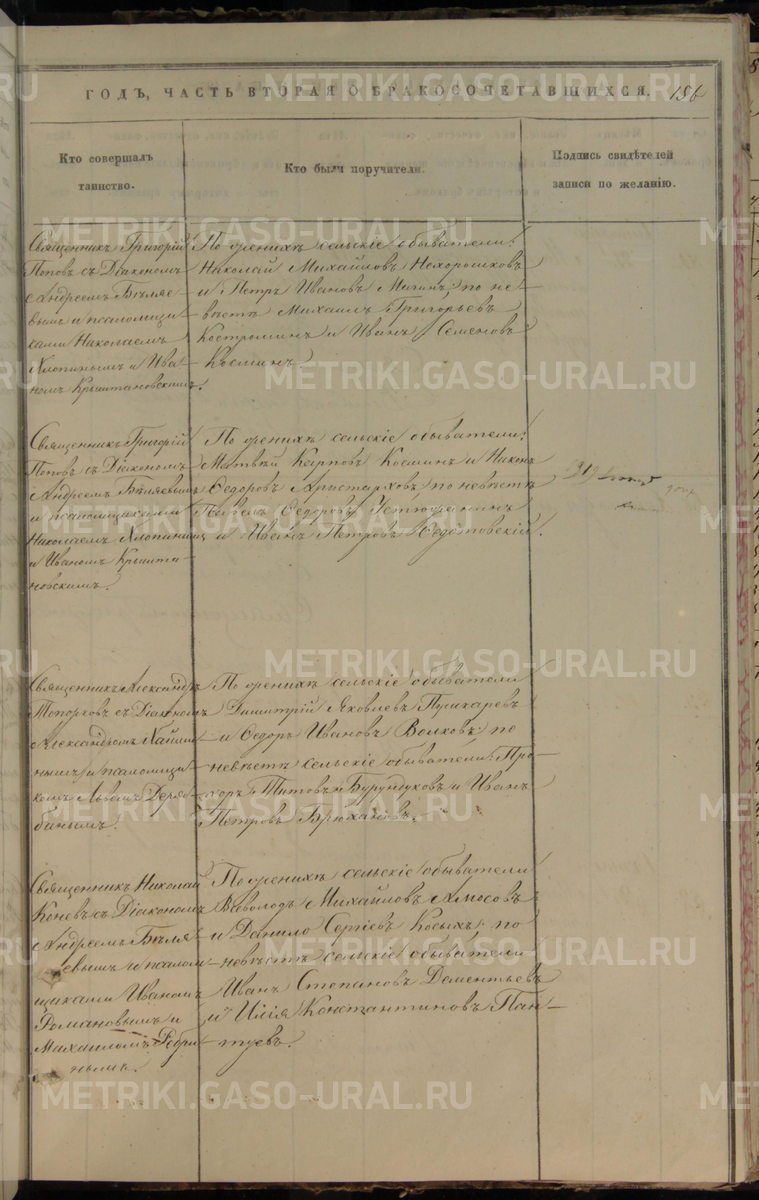 ГОДЪ, ЧАСТЬ ВТОРАЯ О БРАКОСОЧЕТАВШИХСЯ.
Кто совершалъ
таинство.
Кто были поручители.
Подпись свидѣтелей
записи по желанію.
Священникъ Григорій
Поповъ съ Діакономъ
Андреемъ Бѣляе
вымъ и псаломщи
ками Николаемъ
Хлопинымъ и Ива
номъ Крыштановскимъ.
По женихѣ сельскіе обыватели:
Николай Михайловъ Нехорошковъ
и Петръ Ивановъ; по не
вѣстѣ Михаилъ Григорьевъ
Костроминъ и Иванъ Семеновъ
Косминъ.
Священникъ Григорій
Поповъ съ Діакономъ
Андреемъ Бѣляевымъ
и псаломщиками
Николаемъ Хлопинымъ
и Иваномъ Крышта
новскимъ.
По женихѣ сельскіе обыватели:
Матвѣй Карповъ Косминъ и Никонъ
Ѳедоровъ Аристарховъ; по невѣстѣ
Павелъ Ѳедоровъ Устюжанинъ
и Иванъ Петровъ Ѳедотовскій.
Священникъ Александръ
Топорковъ съ Діакономъ
Александромъ
нымъ и псаломщи
комъ Львомъ Деря
бинымъ.
По женихѣ сельскіе обыватели
Димитрій Яковлевъ Пушкаревъ
и Ѳедоръ Ивановъ Волковъ; по
невѣстѣ сельскіе обыватели: Про
хоръ Титовъ Бурундуковъ и Иванъ
Петровъ Брюхановъ.
Священникъ Николай
Коневъ съ Діакономъ
Андреемъ Бѣля
евымъ и псалом
щиками Иваномъ
Романовымъ и
Михаиломъ Ребри
нымъ.
По женихѣ сельскіе обыватели
Всеволодъ Михайловъ Амосовъ
и Данило Сергіевъ Косыхъ; по
невѣстѣ сельскіе обыватели
Иванъ Степановъ Дементьевъ
и Илія Константиновъ Пан
туевъ.
METRIKI.GASO-URAL.RU